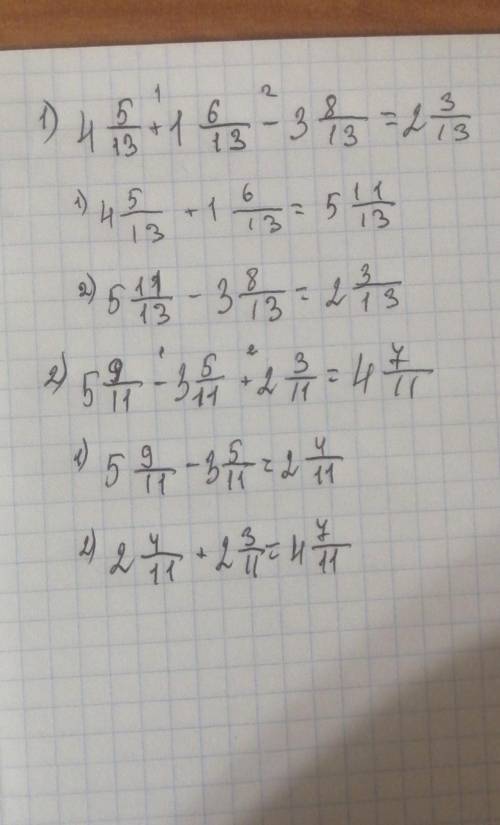 1) 4 5/13 +¹ 1 6/13 -² 3 8/13 = 2 3/13
1) 4 5/13 + 1 6/13 = 5 11/13
2) 5 11/13 - 3 8/13 = 2 3/13
2) 5 9/11 -¹ 3 5/11 +² 2 3/11 = 4 7/11
1) 5 9/11 - 3 5/11 = 2 4/11
2) 2 4/11 + 2 3/11 = 4 7/11